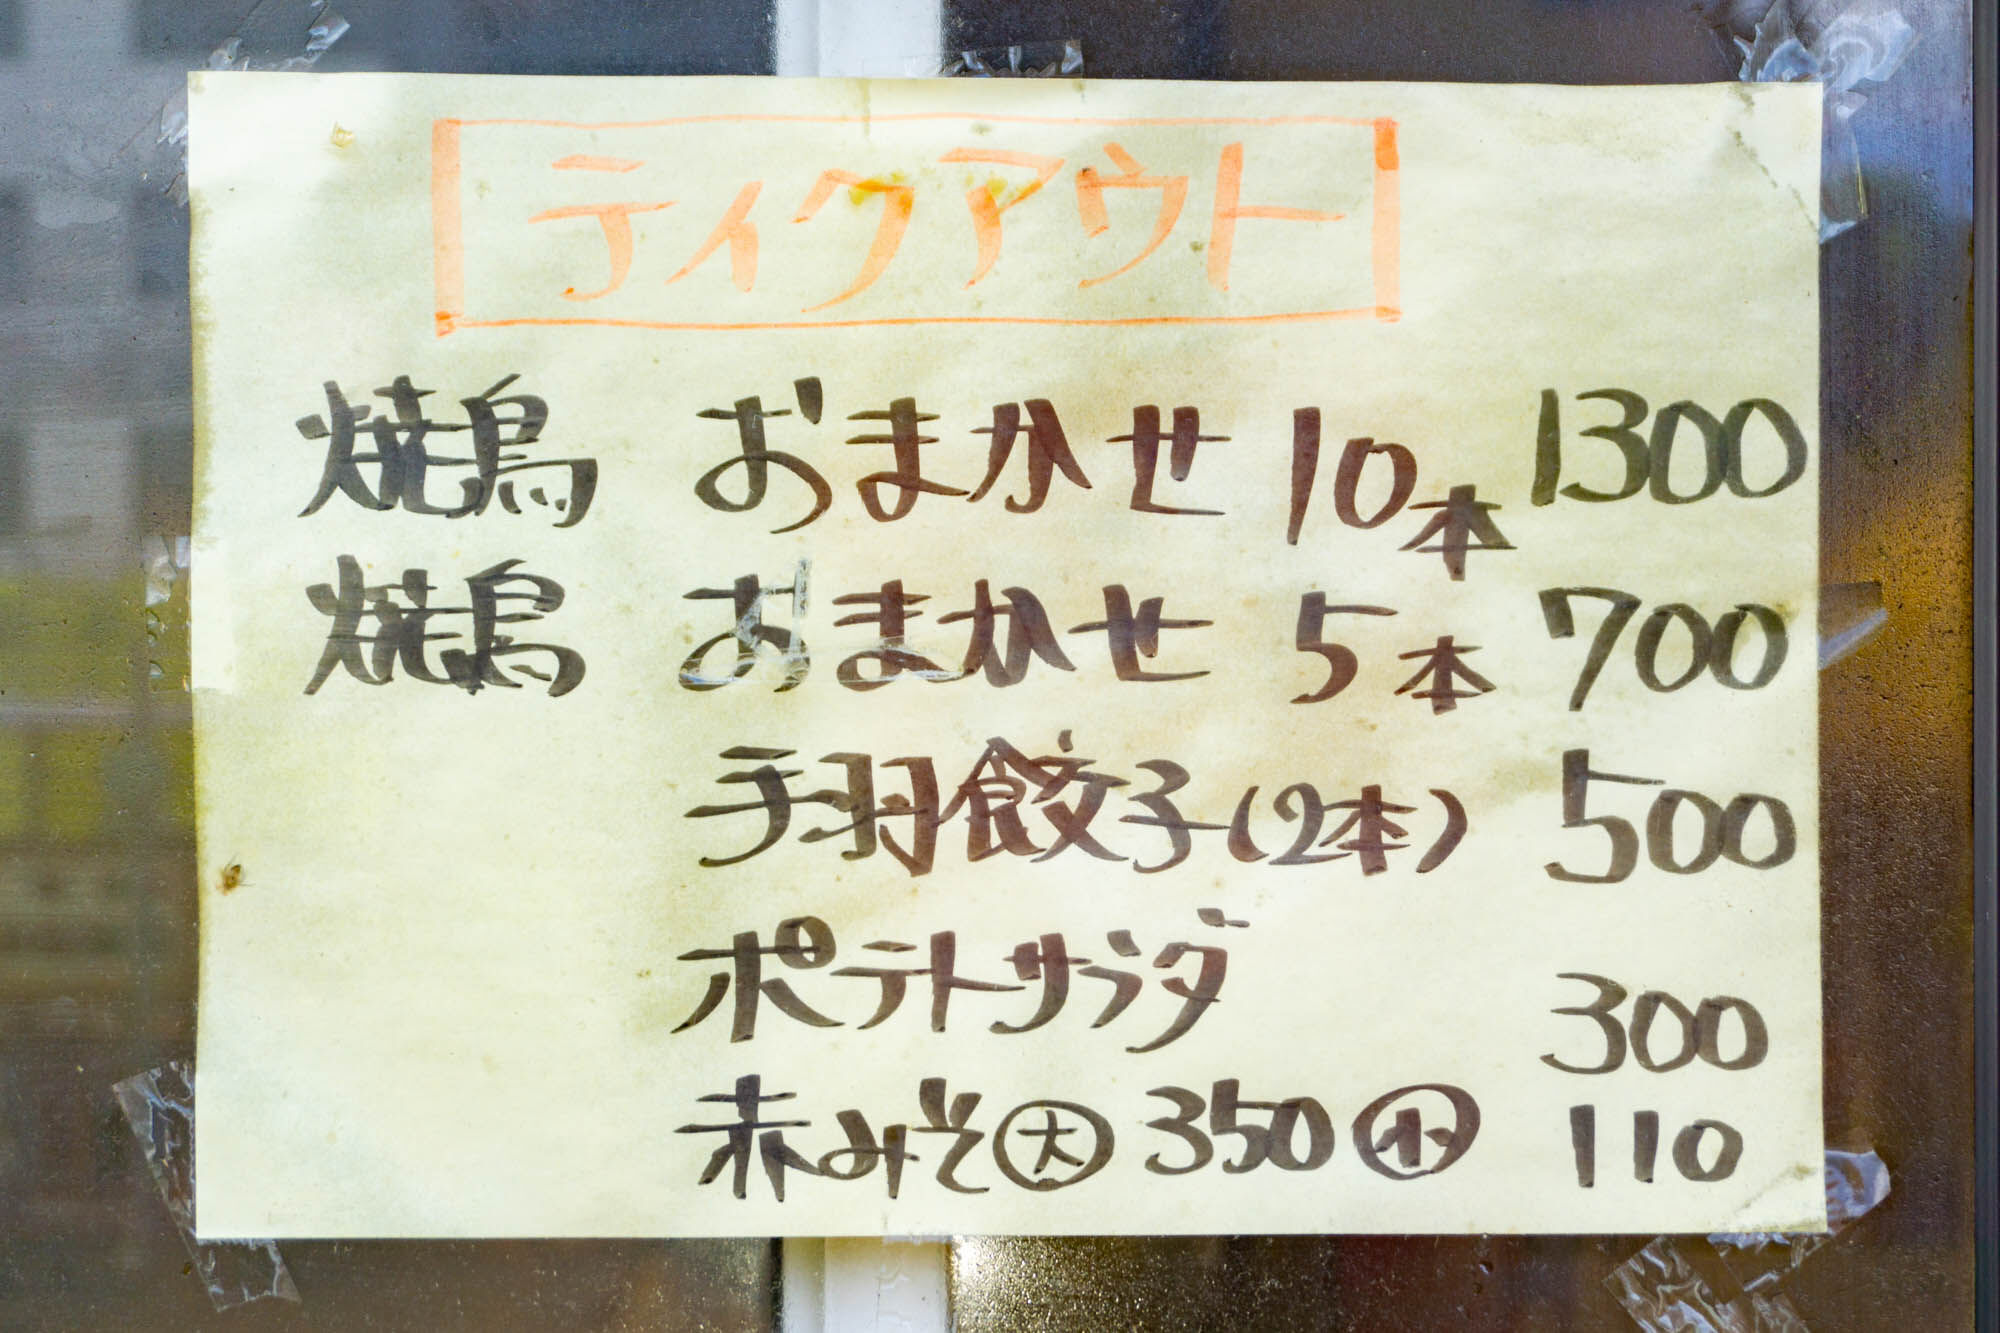 ティクアウト
焼鳥 おまかせ 10本 1300
焼鳥 おまかせ 5本 700
手羽餃子(2本) 500
ポテトサラダ 300
赤みそ㊛大 350 ㊛小 110